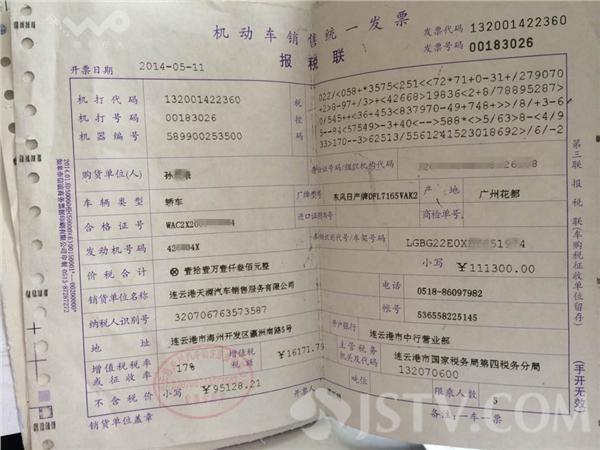 机动车销售统一发票
发票代码 132001422360
发票号码 00183026
开票日期 2014-05-11
报税联
机打代码 132001422360
机打号码 00183026
机器编号 589900253500
税控码
022/<058+*3575<251<<72*71+0-31+/279070
购货单位(人) 孙
身份证号码/组织机构代码
车辆类型 轿车
厂牌型号 东风日产牌DFL7165VAK2
产地 广州花都
合格证号 WAC2X20
进口证明书号
商检单号
发动机号 42 04X
车辆识别代号/车架号码 LGBG22E0X
价税合计 ⊗壹拾壹万壹仟叁佰元整
小写 ￥111300.00
销货单位名称 连云港天澜汽车销售服务有限公司
电话 0518-86097982
纳税人识别号 320706763573587
帐号 536558225145
地址 连云港市海州开发区瀛洲南路5号
开户银行 连云港市中行营业部
增值税税率或征收率 17%
增值税税额 ￥16171.79
主管税务机关及代码 连云港市国家税务局第四税务分局
132070600
不含税价 小写 ￥95128.21
吨位
限乘人数 5
销货单位盖章
开票人
备注:一车一票
第三联
(车购税征收单位留存)
(手开无效)
JSTV.COM